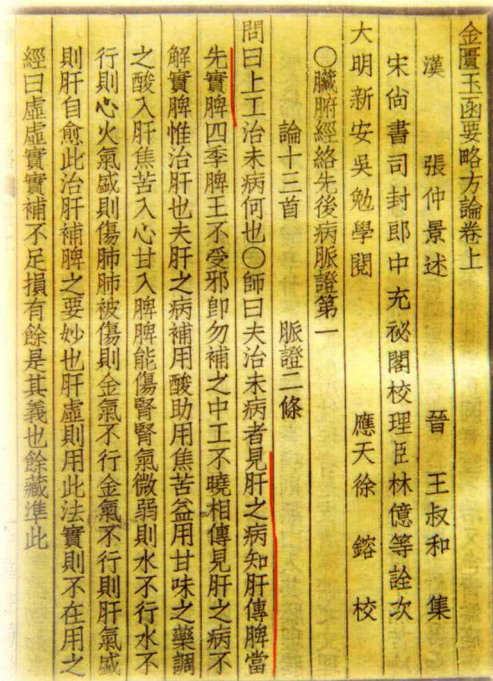 金匱玉函要略方論卷上
漢 張仲景述 晉 王叔和 集
宋尙書司封郎中充祕閣校理臣林億等詮次
大明新安吳勉學閱 應天徐 鎔 校
○臟腑經絡先後病脈證第一
論十三首 脈證二條
問曰上工治未病何也○師曰夫治未病者見肝之病知肝傳脾當
先實脾四季脾王不受邪卽勿補之中工不曉相傳見肝之病不
解實脾惟治肝也夫肝之病補用酸助用焦苦益用甘味之藥調
之酸入肝焦苦入心甘入脾脾能傷腎腎氣微弱則水不行水不
行則心火氣盛則傷肺肺被傷則金氣不行金氣不行則肝氣盛
則肝自愈此治肝補脾之要妙也肝虛則用此法實則不在用之
經曰虛虛實實補不足損有餘是其義也餘藏準此